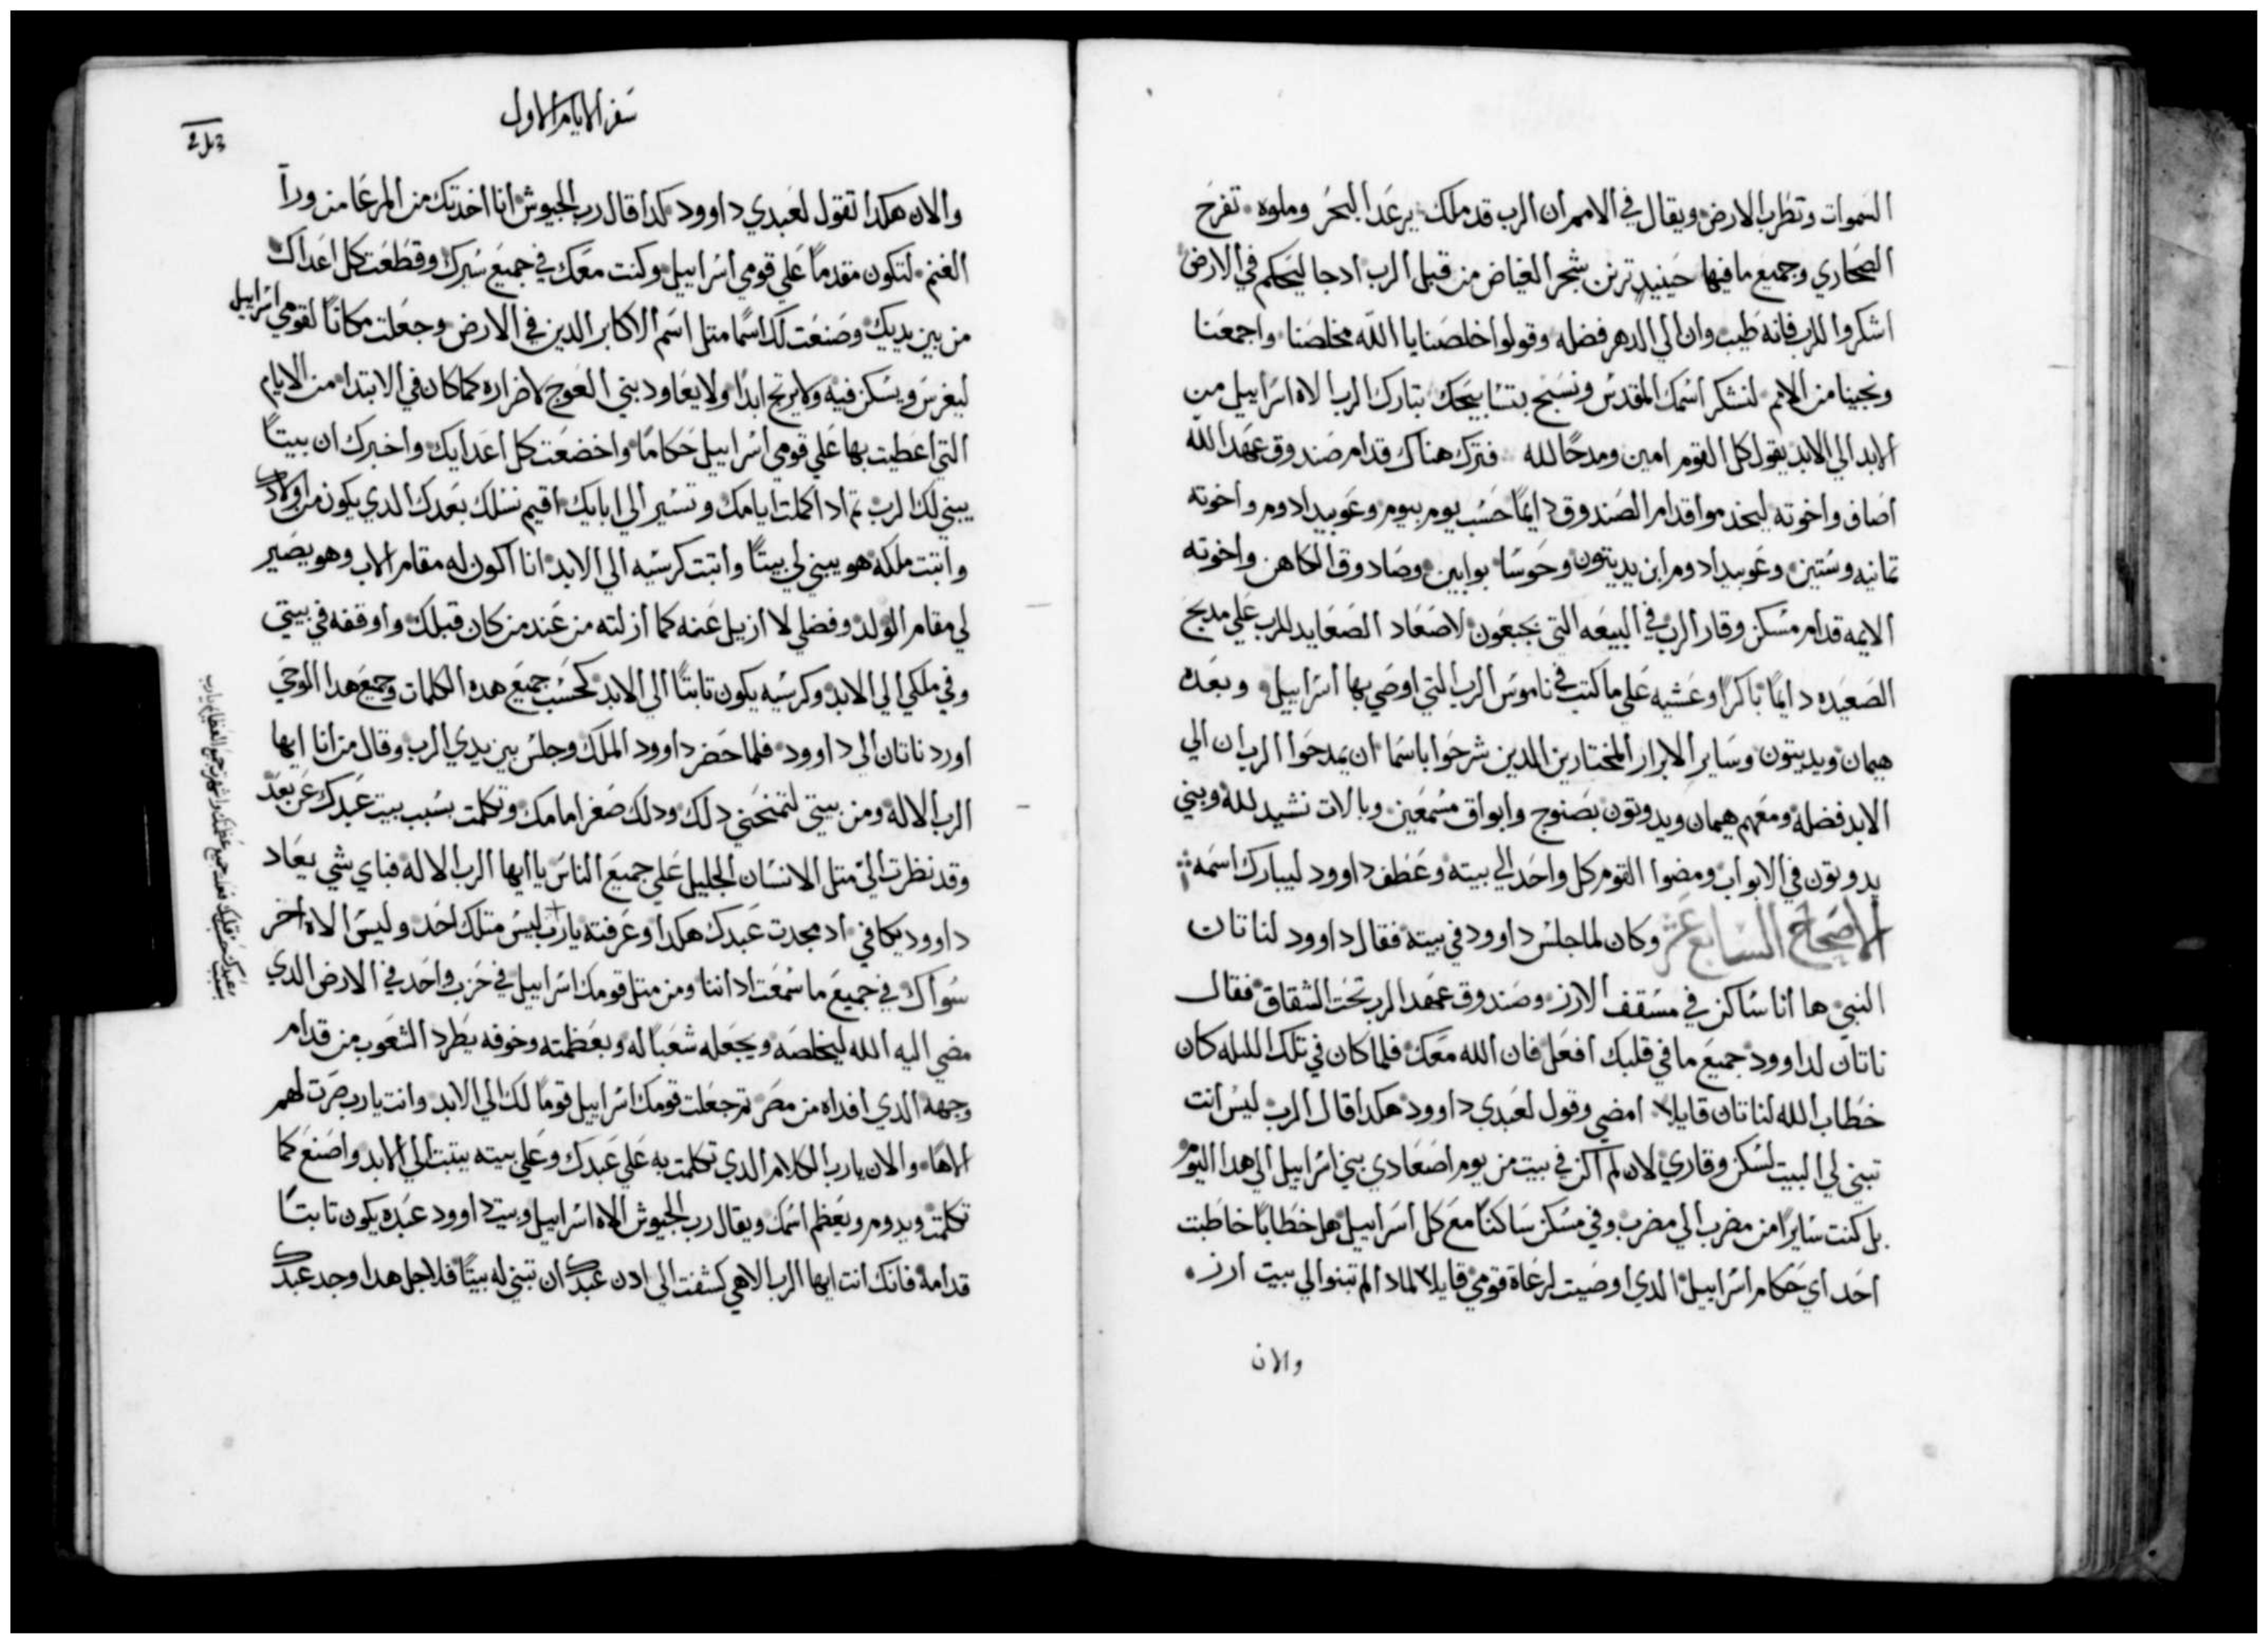 السموات وتطرب الارض ويقال في الامم ان الرب قد ملك يرعد البحر وملوه تفرح
الصحاري وجميع ما فيها حينيد ترنن شجر الغياض من قبل الرب ادجا ليحكم في الارض
اشكروا للرب فانه طيب وان الي الدهر فضله وقولوا خلصنا يا الله مخلصنا واجمعنا
ونجينا من الامم لنشكر اسمك المقدس ونسبح بتسابيحك تبارك الرب الاه اسراييل من
الابد الي الابد يقول كل القوم امين ومدحًا لله فترك هناك قدام صندوق عهد الله
اصاف واخوته ليخدموا قدام الصندوق دايمًا حسب يوم بيوم وعوبيد ادوم واخوته
تمانيه وستين وعوبيد ادوم ابن يديتون وحوسا بوابين وصادوق الكاهن واخوته
الايمه قدام مسكن وقار الرب في البيعه التي بجبعون لاصعاد الصعايد للرب علي مدبح
الصعيده دايمًا باكرًا وعشيه علي ما كتب في ناموس الرب التي اوصي بها اسراييل وبعده
هيمان ويديتون وساير الابرار المختارين الدين شرحوا باسما ان يمدحوا الرب ان الي
الابد فضله ومعهم هيمان ويدوتون بصنوج وابواق مسمعين وبالات نشيد لله وبني
يدوتون في الابواب ومضوا القوم كل واحد الي بيته وعطف داوود ليبارك اسمه
الاصحاح السابع عشر وكان لما جلس داوود في بيته فقال داوود لناتان
النبي ها انا ساكن في مسقف الارز وصندوق عهد الرب تحت الشقاق فقال
ناتان لداوود جميع ما في قلبك افعل فان الله معك فلما كان في تلك الليله كان
خطاب الله لناتان قايلا امضي وقول لعبدي داوود هكدا قال الرب ليس انت
تبني لي البيت لسكن وقاري لان لم اكن في بيت من يوم اصعادي بني اسراييل الي هدا اليوم
بل كنت سايرًا من مضرب الي مضرب وفي مسكن ساكنًا مع كل اسراييل هل خطابًا خاطبت
احد اي حكام اسراييل الدي اوصيت لرعاة قومي قايلا لمادا لم تبنوا لي بيت ارز
والان
سفر الايام الاول
والان هكدا تقول لعبدي داوود كدا قال رب الجيوش انا اخدتك من المرعا من ورا
الغنم لتكون مقدمًا علي قومي اسراييل وكنت معك في جميع سيرك وقطعت كل اعداك
من بين يديك وصنعت لك اسمًا متل اسم الاكابر الدين في الارض وجعلت مكانًا لقومي اسراييل
ليغرس ويسكن فيه ولا يرتج ابدًا ولا يعاود بني العوج لاضراره كما كان في الابتدا من الايام
التي اعطيت بها علي قومي اسراييل حكامًا واخضعت كل اعدايك واخبرك ان بيتًا
يبني لك الرب تم ادا كملت ايامك وتسير الي ابايك اقيم نسلك بعدك الدي يكون من اولادك
واتبت ملكه هو يبني لي بيتًا واتبت كرسيه الي الابد انا اكون له مقام الاب وهو يصير
لي مقام الولد وفضلي لا ازيل عنه كما ازلته من عند من كان قبلك واوقفه في بيتي
وفي ملكي الي الابد وكرسيه يكون تابتًا الي الابد كحسب جميع هده الكلمات وجميع هدا الوحي
اورد ناتان الي داوود فلما حضر داوود الملك وجلس بين يدي الرب وقال من انا ايها
الرب الاله ومن بيتي لتمنحني دلك ودلك صغر امامك وتكلمت بسبب بيت عبدك عن بعد
وقد نظرت الي متل الانسان الجليل علي جميع الناس يا ايها الرب الاله فباي شي يعاد
داوود يكافي اد مجدت عبدك هكدا وعرفته يارب ليس متلك احد وليس الاه اخر
سواك في جميع ما سمعت اداننا ومن متل قومك اسراييل في حزب واحد في الارض الدي
مضي اليه الله ليخلصه ويجعله شعبًا له وبعظمته وخوفه يطرد الشعوب من قدام
وجهه الدي افداه من مصر تم جعلت قومك اسراييل قومًا لك الي الابد وانت يارب صرت لهم
الاهًا والان يارب الكلام الدي تكلمت به علي عبدك وعلي بيته يتبت الي الابد واصنع كما
تكلمت ويدوم ويعظم اسمك ويقال رب الجيوش الاه اسراييل وبيت داوود عبده يكون تابتًا
قدامه فانك انت ايها الرب الاهي كشفت الي ادن عبدك ان تبني له بيتًا فلاجل هدا وجد عبدك